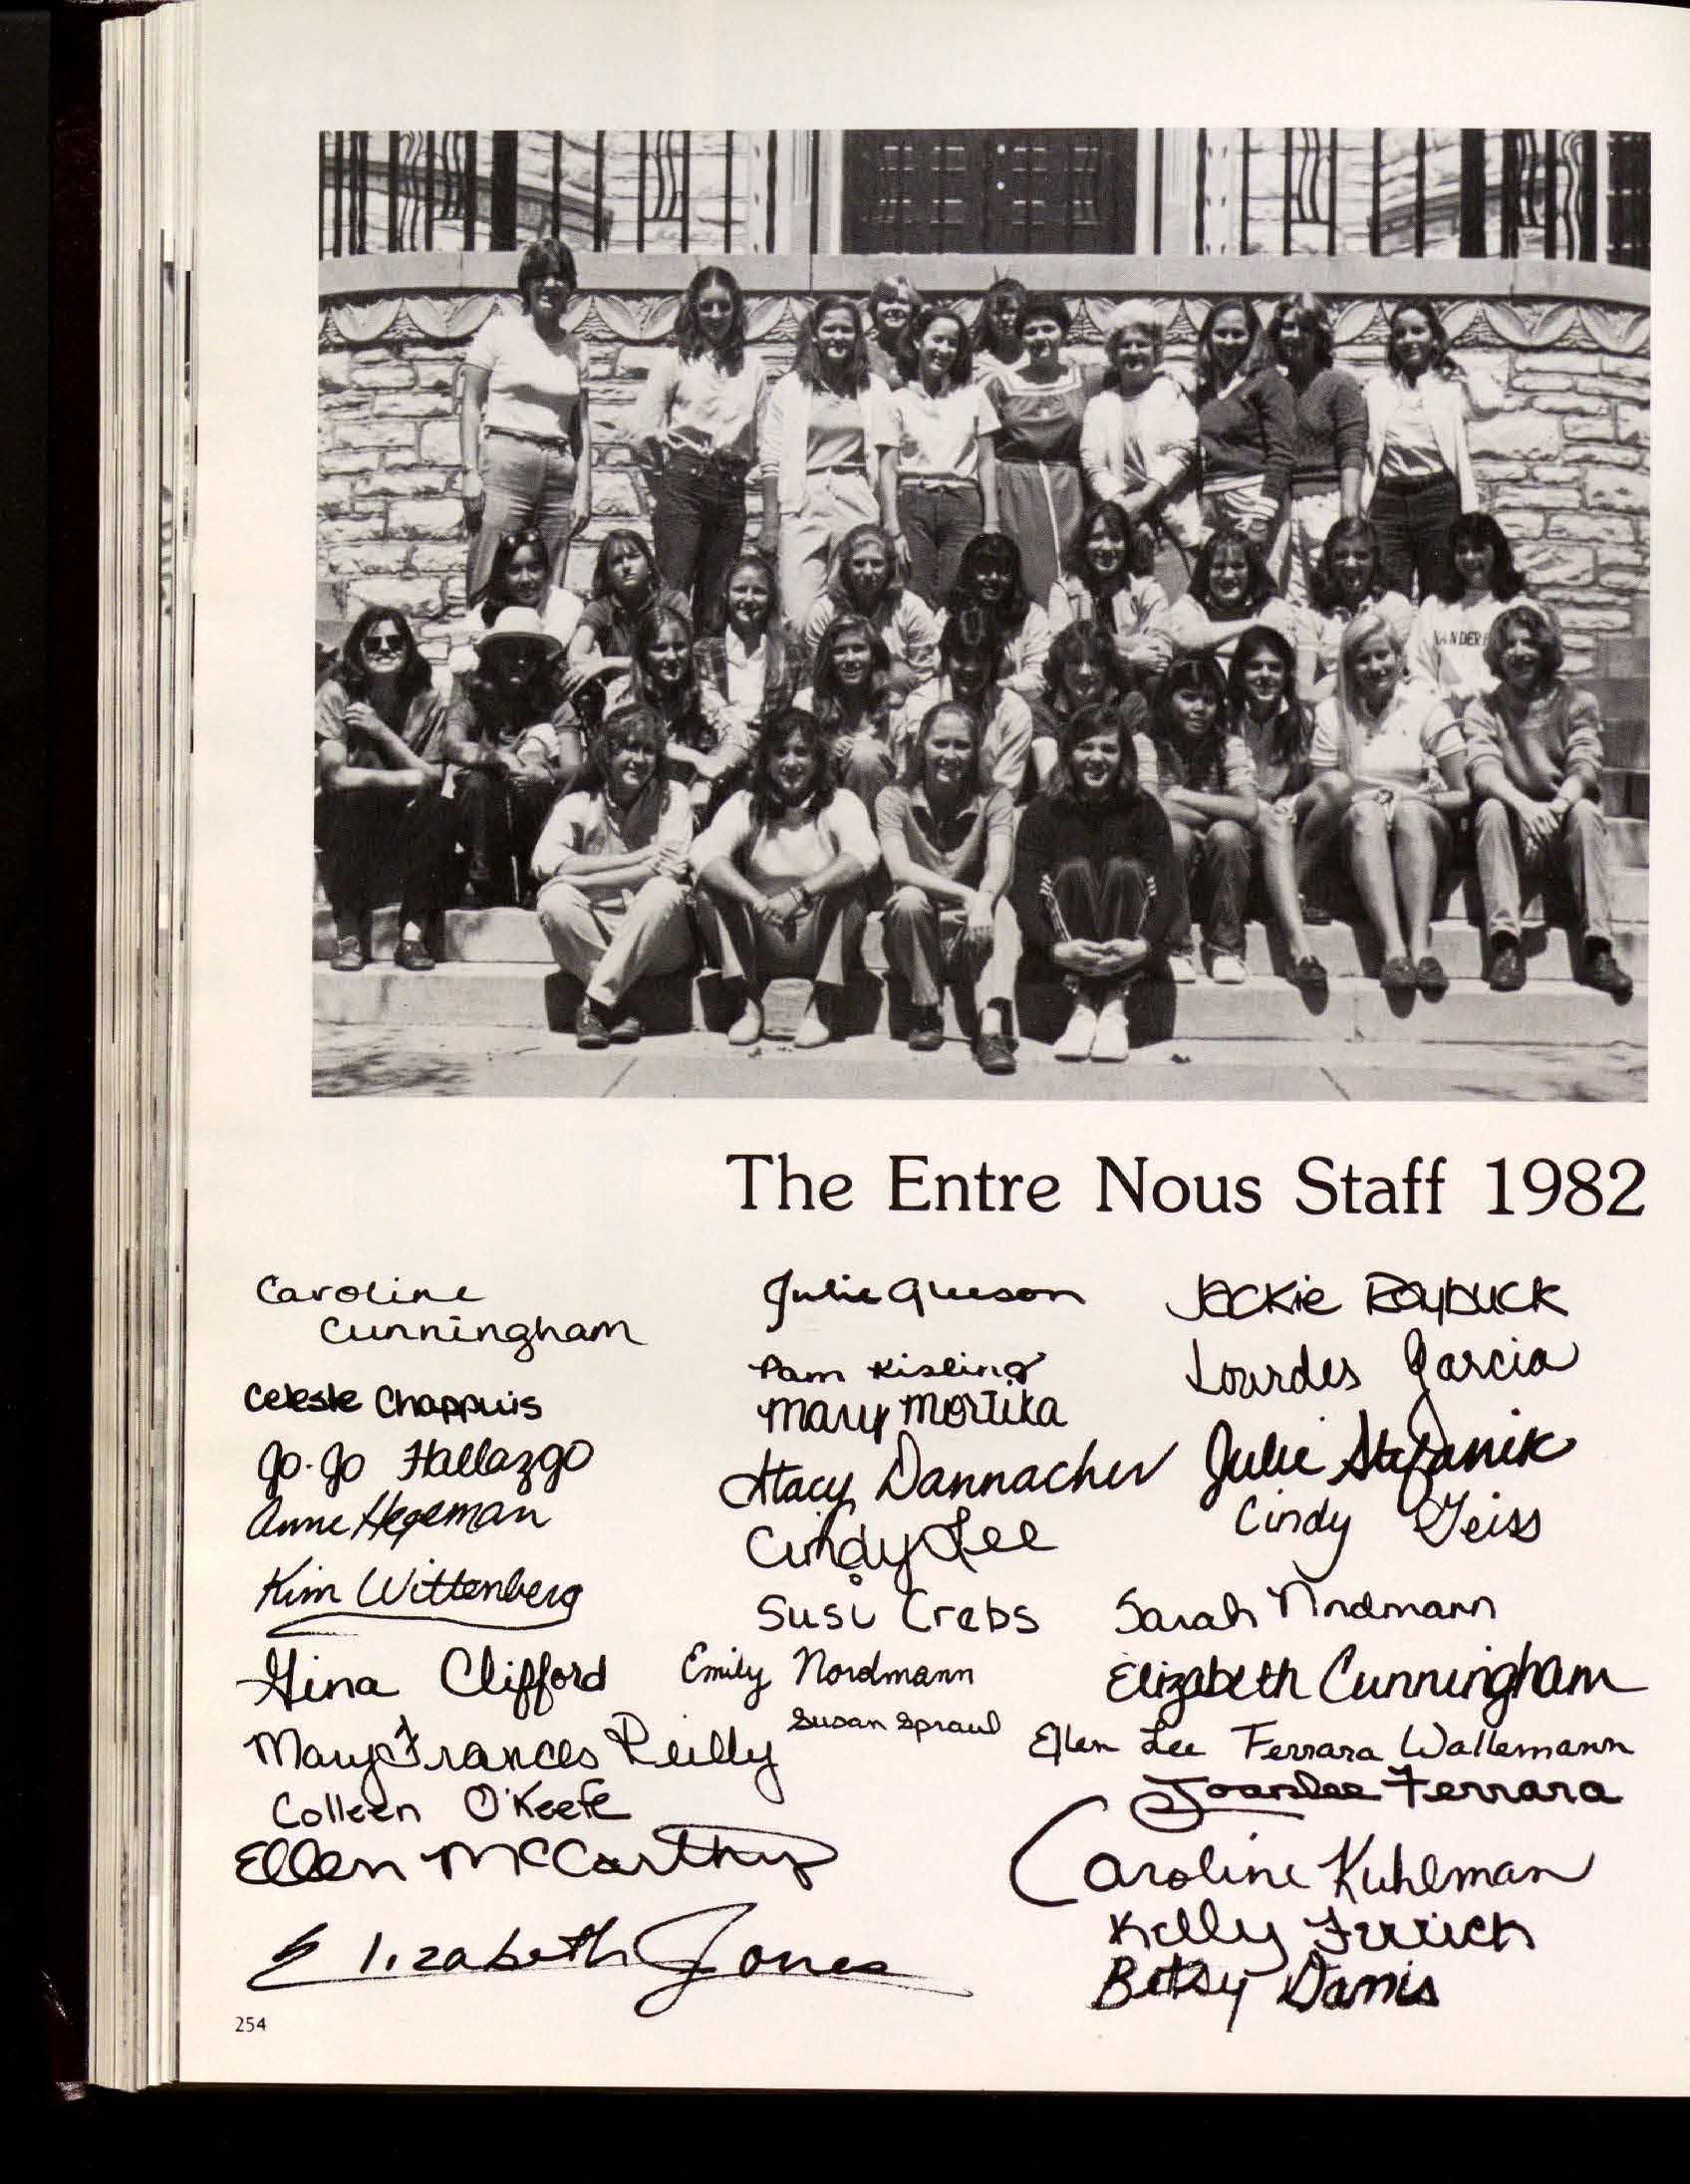 VANDER
The Entre Nous Staff 1982
Caroline
Cunningham
Celeste Chappuis
Jo-Jo Hallazgo
Anne Hegeman
Kim Wittenberg
Gina Clifford
Mary Frances Reilly
Colleen O'Keefe
Ellen McCarthy
Elizabeth Jones
Julie Gleeson
Pam Kisling
Mary Mortika
Stacy Dannacher
Cindy Lee
Susi Crebs
Emily Nordmann
Susan Spraul
Jackie Roybuck
Lourdes Garcia
Julie Stefanik
Cindy Geiss
Sarah Nordmann
Elizabeth Cunningham
Ellen Lee Ferrara Wallemann
Joanlee Ferrara
Caroline Kuhlman
Kelly Ferrick
Betsy Damis
254